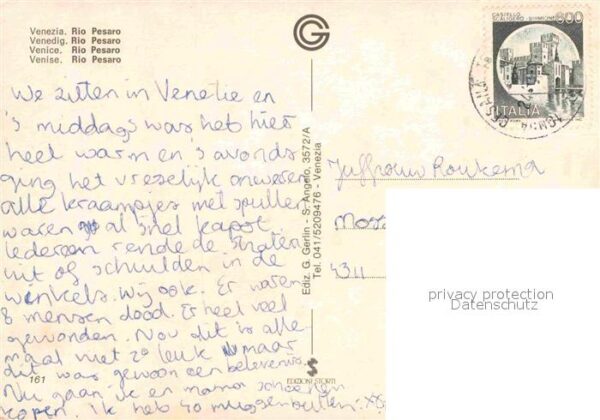 Venezia. Rio Pesaro
Venedig. Rio Pesaro
Venice. Rio Pesaro
Venise. Rio Pesaro
G
CASTELLO
600
ITALIA
We zitten in Venetie en
's middags was het hier
heel warm en 's avonds
ging het vreselijk onweren
alle kraampjes met spullen
waren al snel kapot.
Iedereen rende de straten
uit of schuilden in de
winkels. Wij ook. Er waren
8 mensen dood. Er heel veel
gewonden. Nou dit is alle-
maal niet zo leuk maar
dit was gewoon een belevenis.
Nu gaan ik en mama
kopen. Ik heb 40 muggenbulten.
161
Ediz. G. Gerlin - S. Angelo, 3572/A
Tel. 041/5209476 - Venezia
EDIZIONI STORTI
Juffrouw Roukema
Mos
4311
privacy protection
Datenschutz